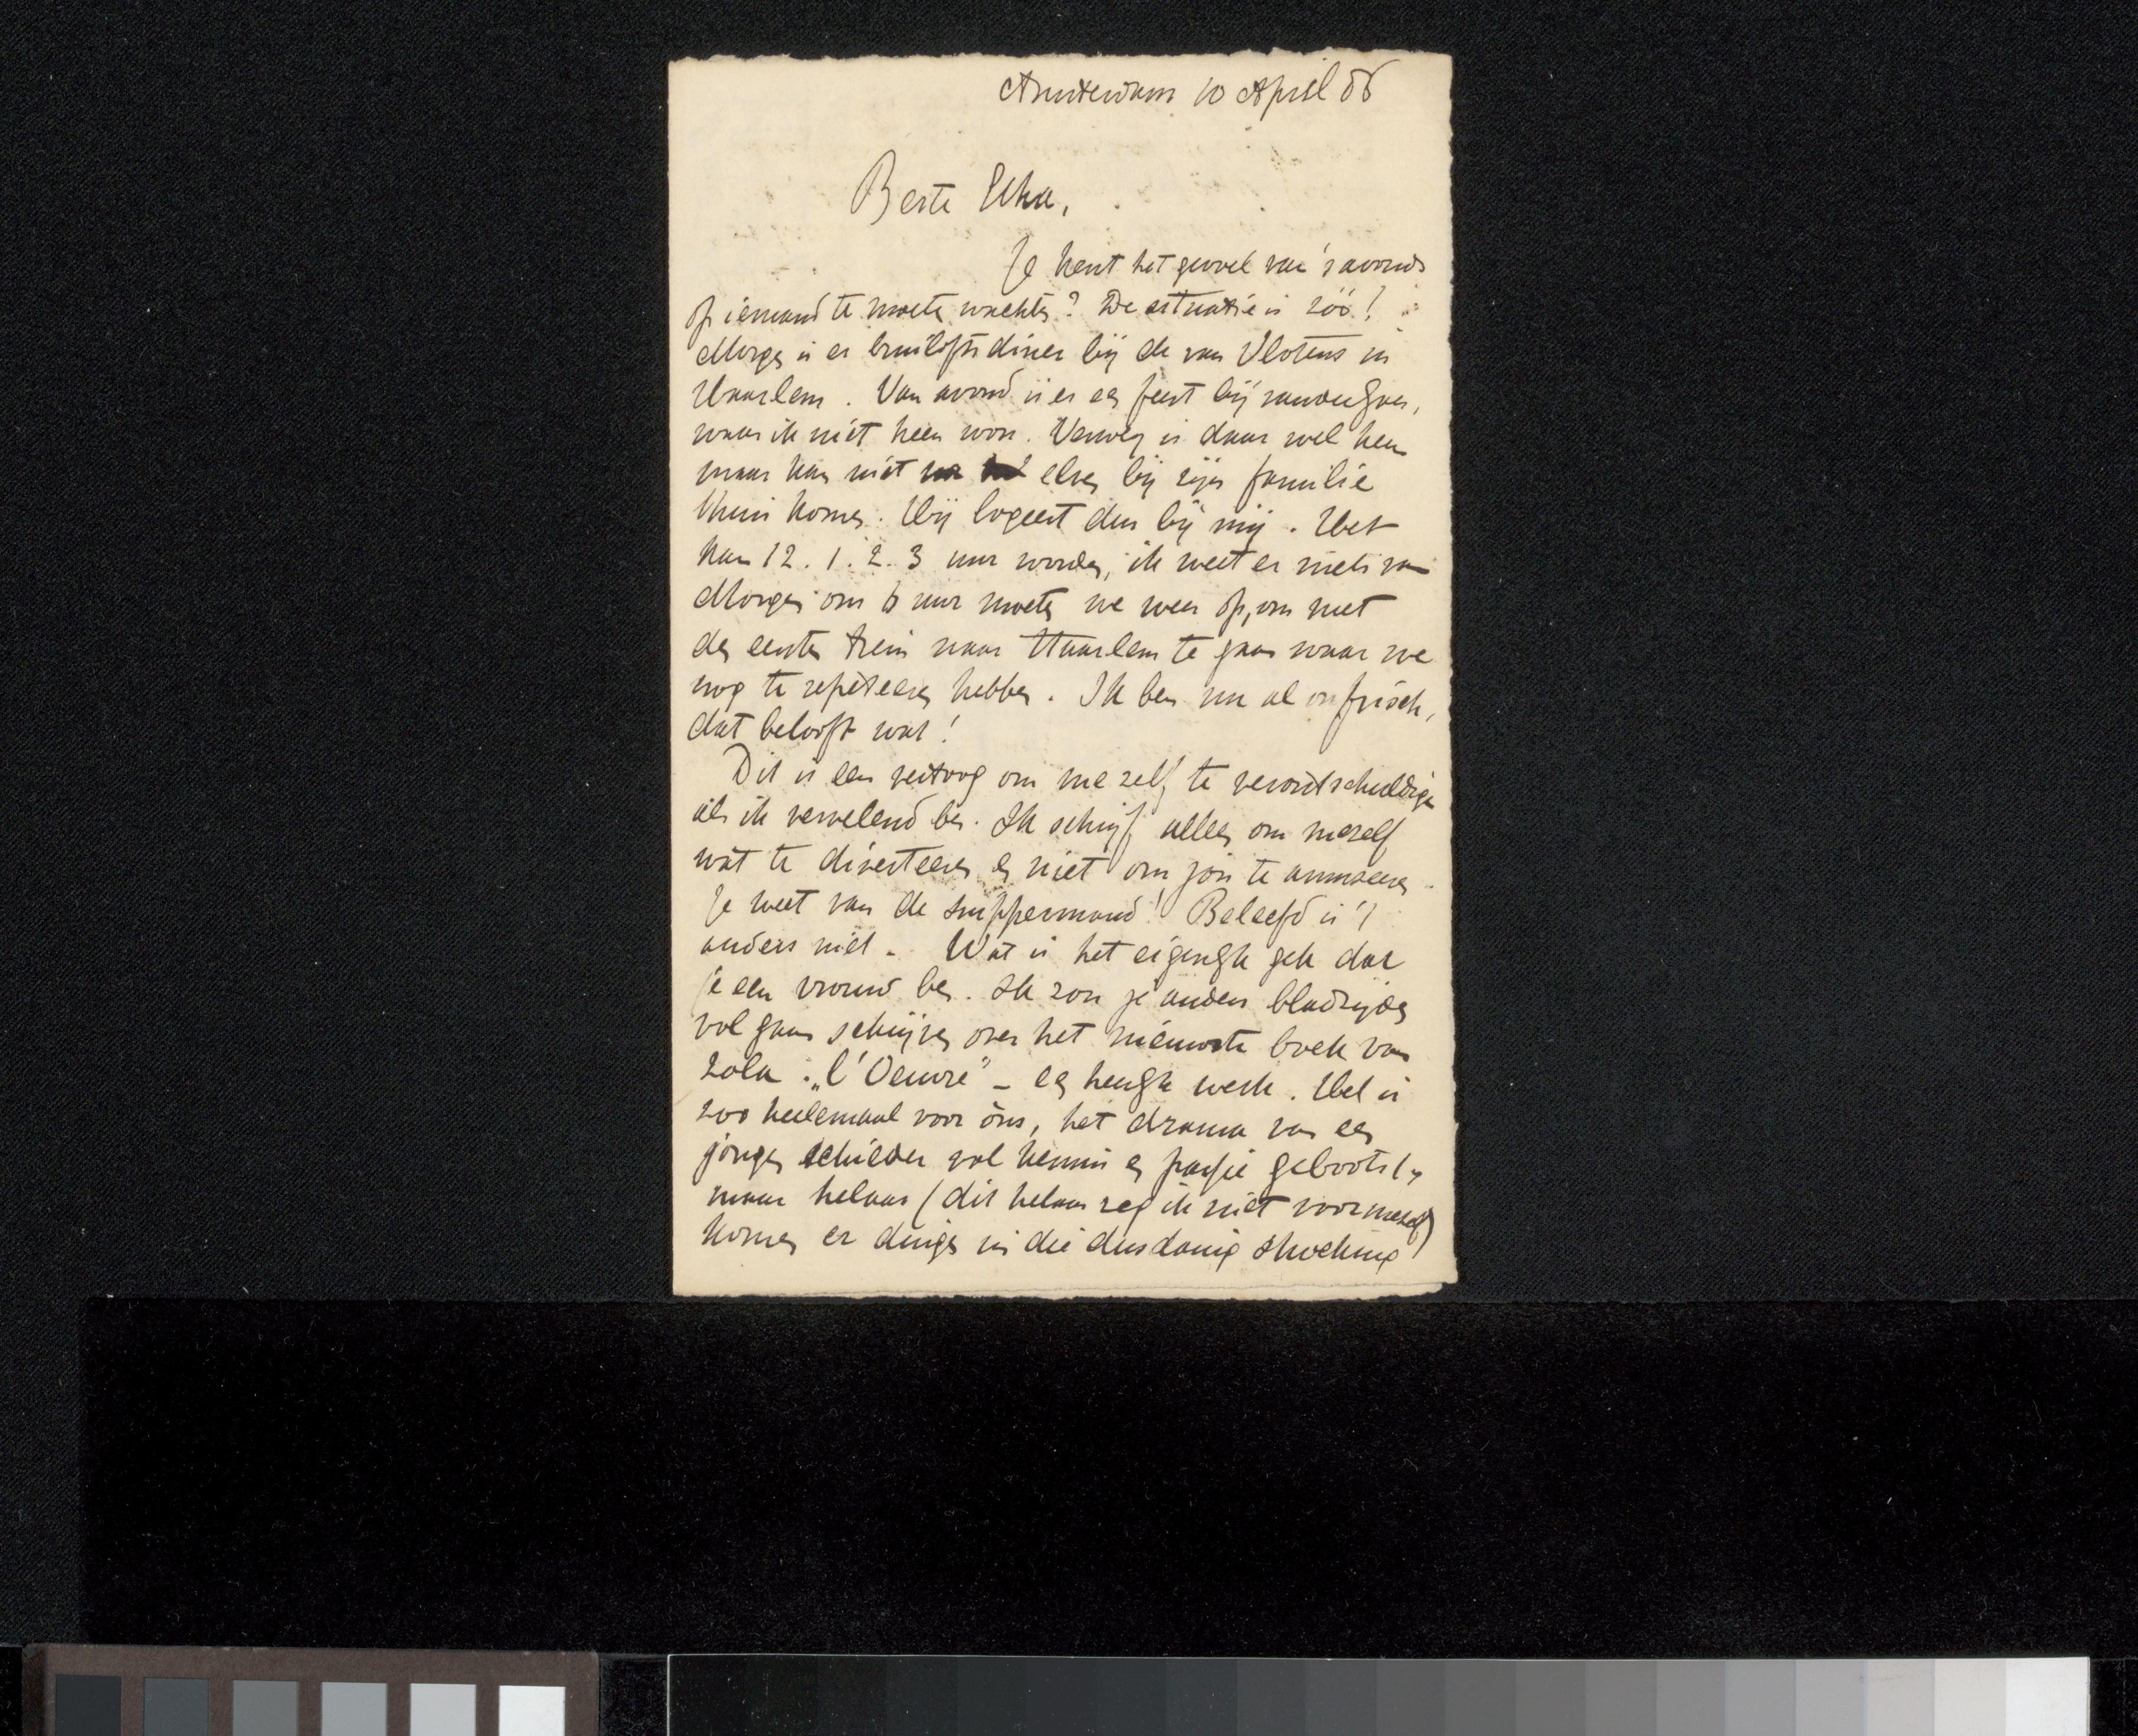 Amsterdam 10 April 86
Beste
Je kent het gevoel van 's avonds
op iemand te moeten wachten? De situatie is zóó!
Morgen is er bruiloftsdiner bij de van Vlotens in
Haarlem. Van avond is er een feest bij
waar ik niet heen wou. Verwey is daar wel heen
maar kan niet elven bij zijn familie
thuis komen. Hij logeert dus bij mij. Het
kan 12. 1. 2. 3 uur worden, ik weet er niets van
Morgen om 6 uur moeten we weer op, om met
den eersten trein naar Haarlem te gaan waar we
nog te repeteeren hebben. Ik ben nu al onfrisch,
dat belooft wat!
Dit is een vertoog om me zelf te verontschuldigen
als ik vervelend ben. Ik schrijf alleen om mezelf
wat te diverteeren en niet om jou te amuseeren.
Je weet van de snippermand! Beleefd is 't
anders niet. Wat is het eigenlijk gek dat
je een vrouw ben. Ik zou je anders bladzijden
vol gaan schrijven over het nieuwste boek van
Zola: „l'Oeuvre" - een heuglijk werk. Het is
zoo heelemaal voor òns, het drama van een
jongen schilder vol kennis en passie
maar helaas (dit helaas zeg ik niet voor mezelf)
komen er dingen in die dusdanig shocking